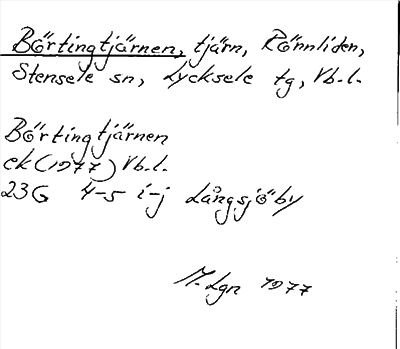 Börtingtjärnen, tjärn, Rönnliden,
Stensele sn, Lycksele tg, Vb.l.
Börtingtjärnen
ek (1977) Vb.l.
23G 4-5 i-j Långsjöby
M. Lgn 1977